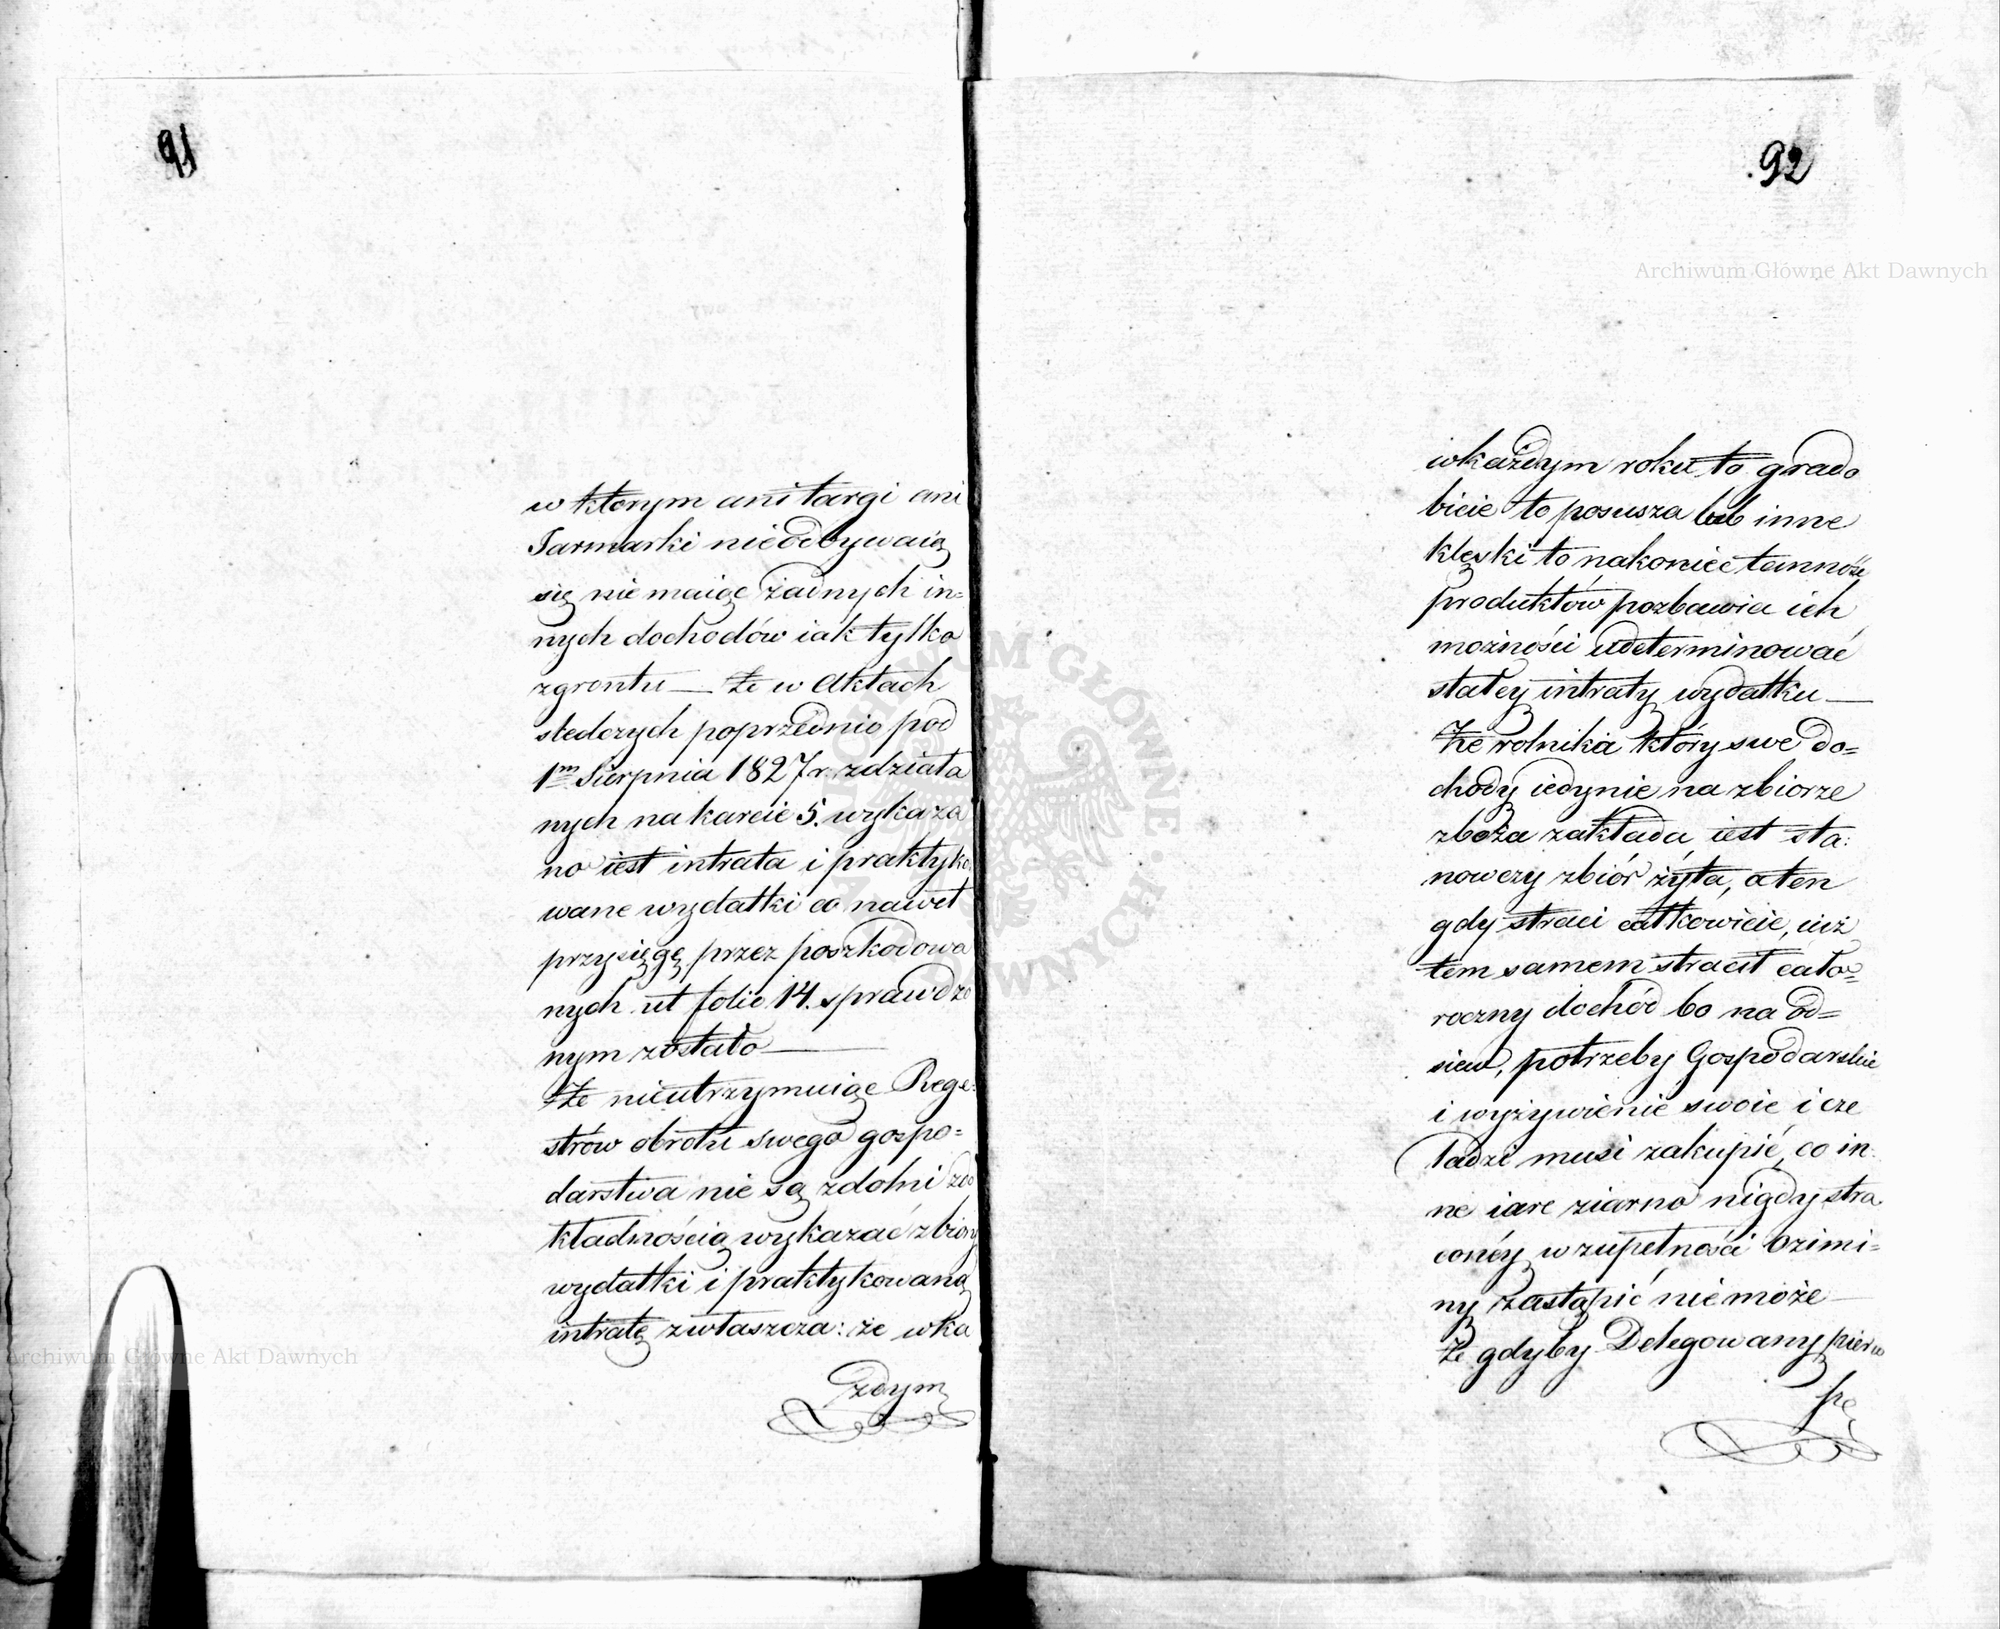 91
w którym ani targi ani
Jarmarki nieodbywaią
się nie maiąc żadnych in=
nych dochodów iak tylko
zgrontu — Że w Aktach
sledczych poprzednio pod
1m Sierpnia 1827 r. zdziała
nych na karcie 5. wykaza
no iest intrata i praktyko
wane wydatki co nawet
przysięgę przez poszkodowa
nych ut folio 14. sprawdzo
nym zostało —
Że nieutrzymuiąc Rege=
strów obrotu swego gospo=
darstwa nie są zdolni zdo
kładnością wykazać zbiory
wydatki i praktykowaną
intratę zwłaszcza: że wka
żdym
92
wkażdym roku to grado
bicie to posusza lub inne
klęski to nakoniec tanność
produktów pozbawia ich
możności udeterminować
stałey intraty wydatku —
Że rolnika który swe do=
chody iedynie na zbiorze
zboża zakłada iest sta:
nowczy zbiór żyta, a ten
gdy straci całkowicie, iuż
tem samem stracił cało=
roczny dochód bo na od=
siew, potrzeby Gospodarskie
i wyżywienie swoie i cze
ladzi musi zakupić, co in
ne iare ziarno nigdy stra
conéy w zupełności Ozimi=
ny zastąpić nie może —
Że gdyby Delegowany pierw
Archiwum Główne Akt Dawnych
Archiwum Główne Akt Dawnych
ARCHIWUM GŁÓWNE AKT DAWNYCH